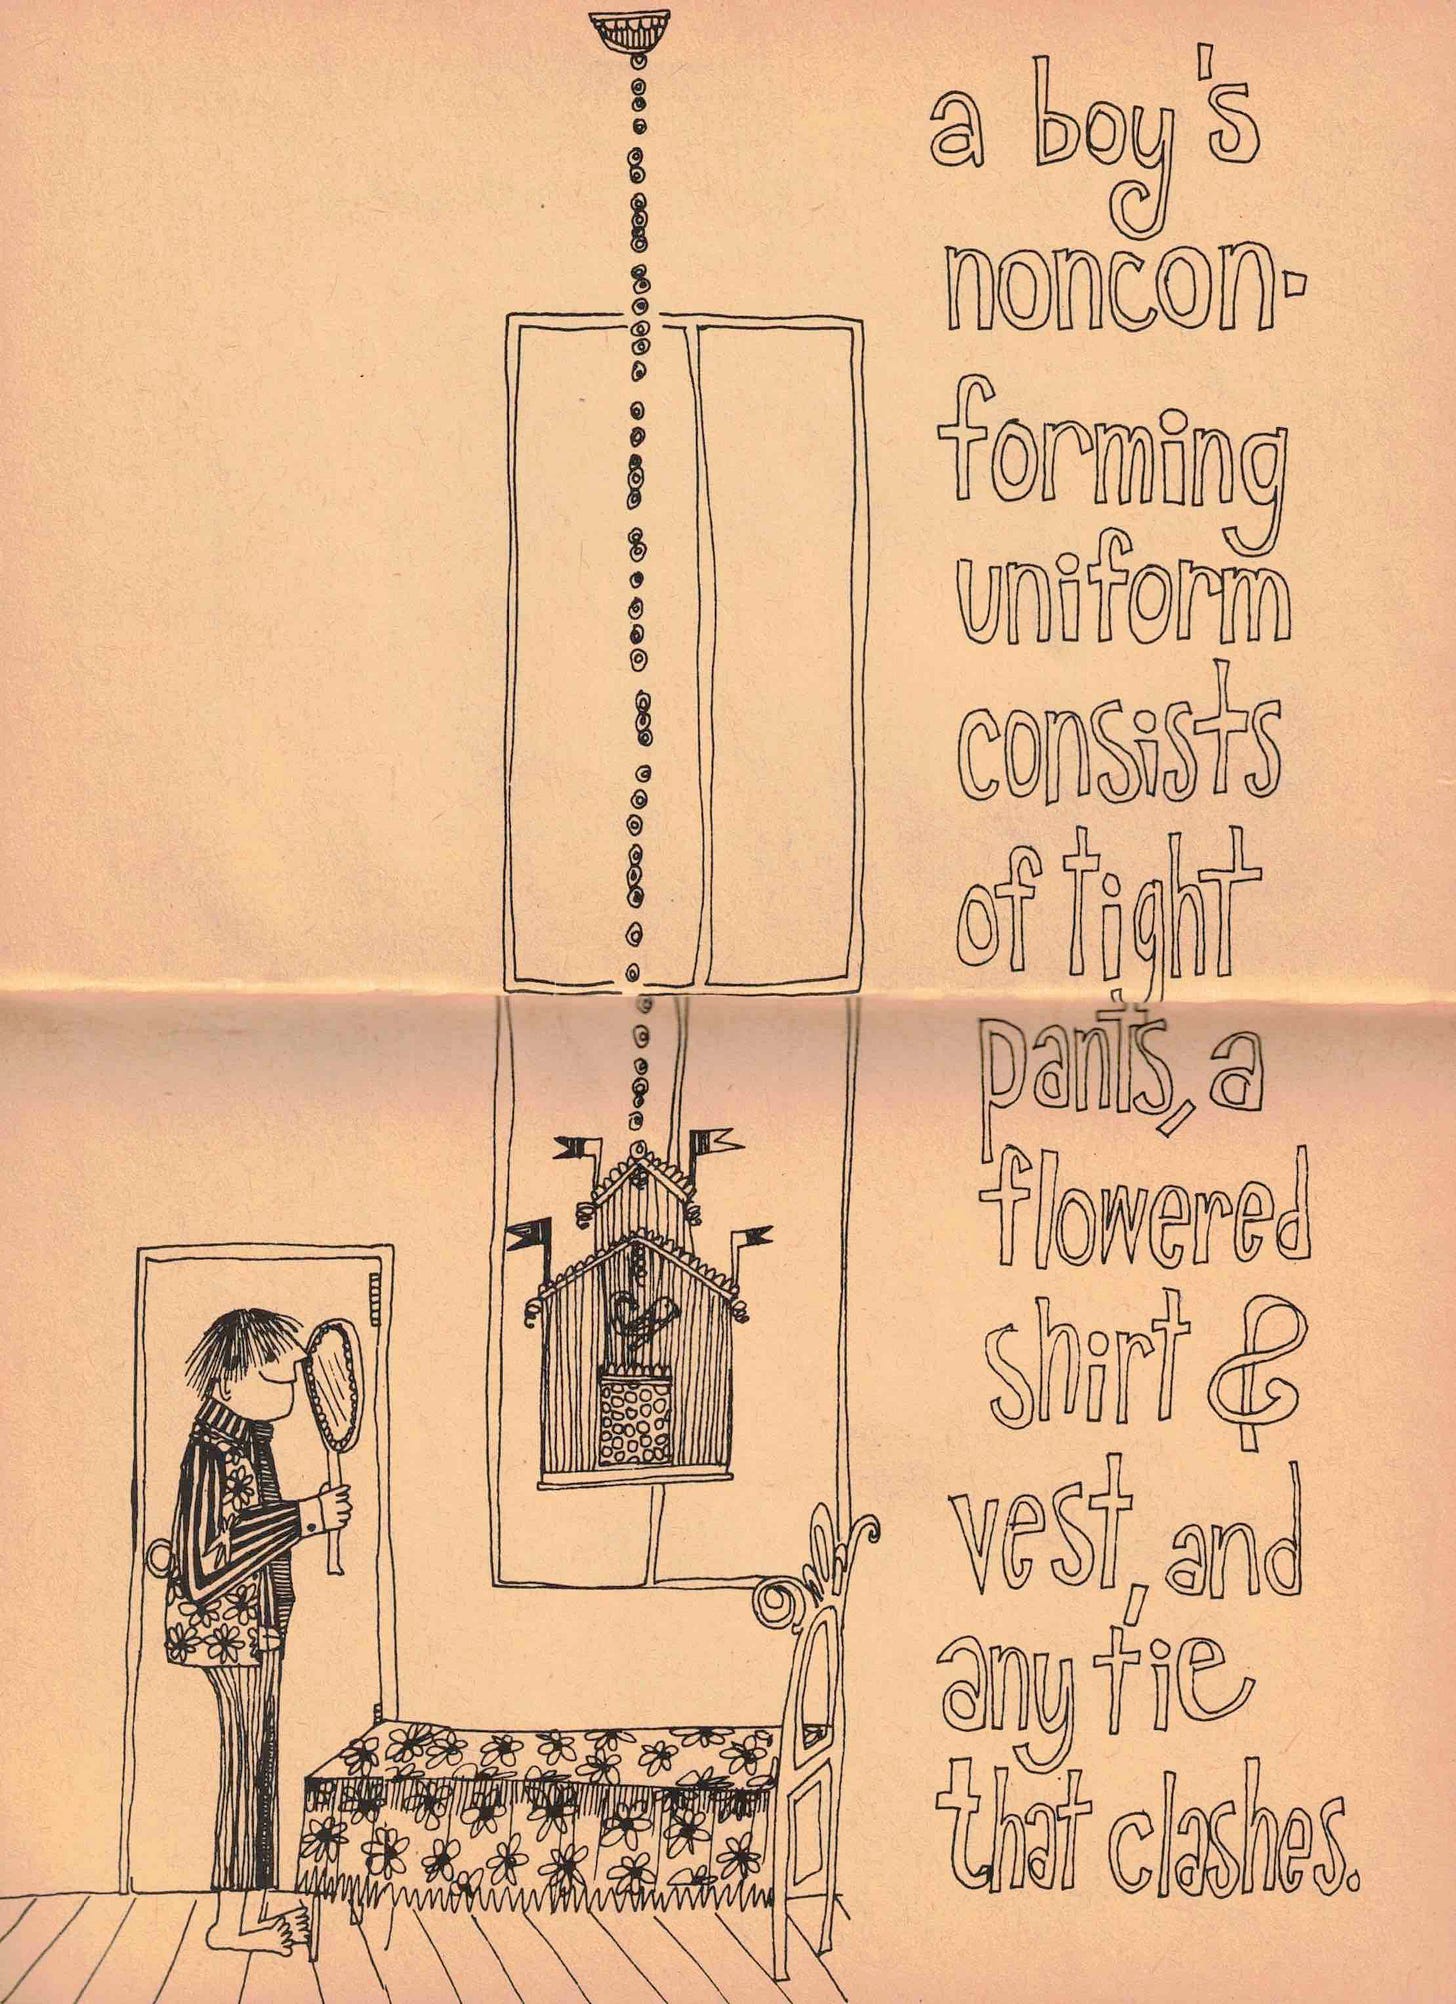 a boy's
noncon-
forming
uniform
consists
of tight
pants, a
flowered
shirt &
vest, and
any tie
that clashes.